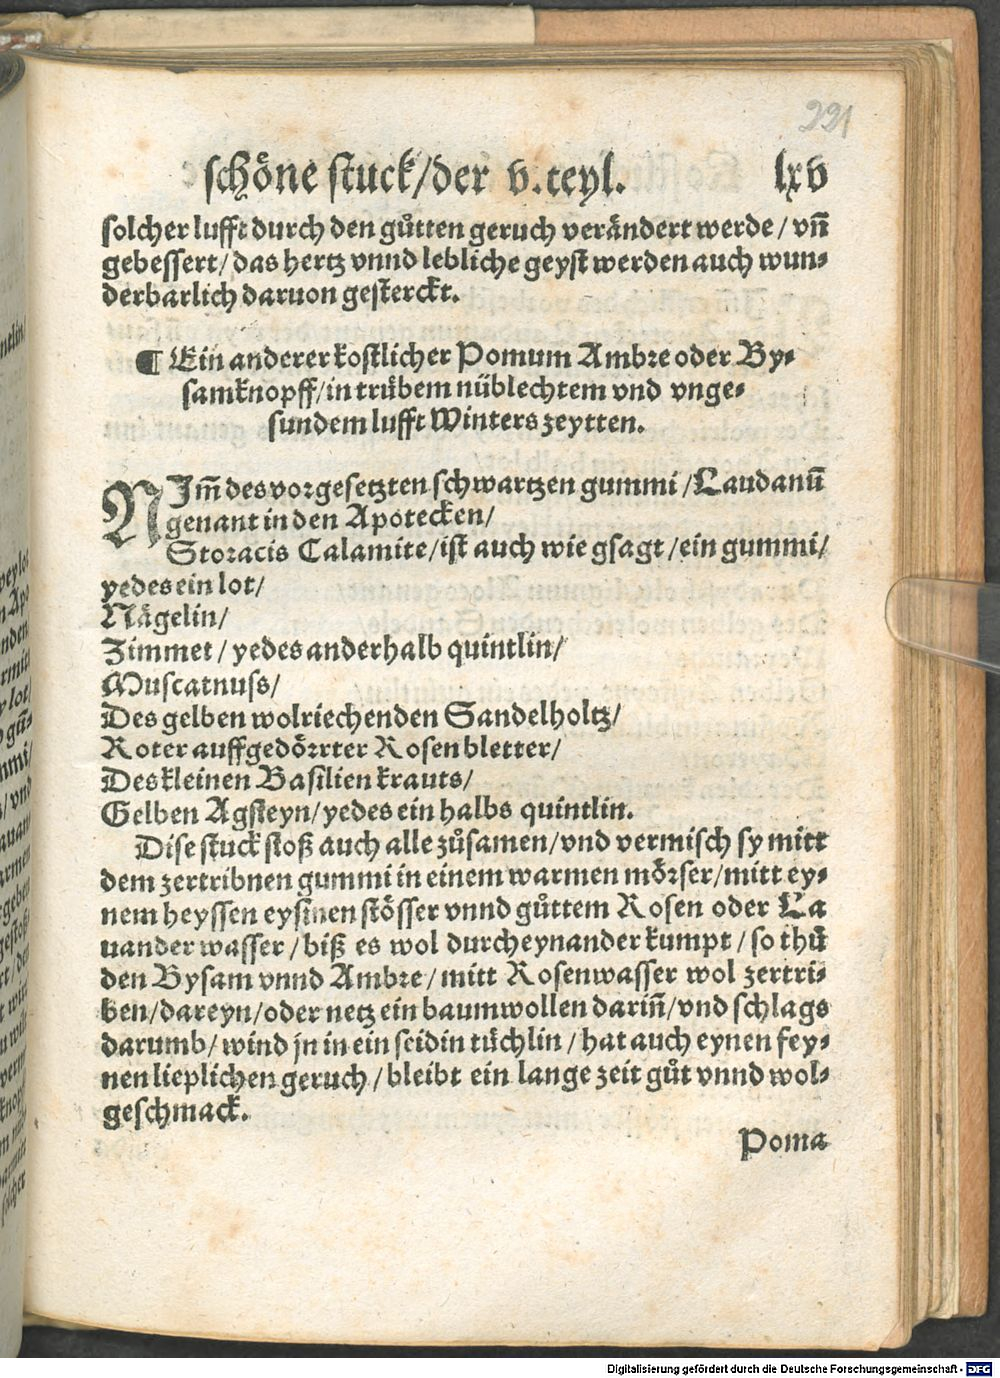 221
schöne stuck/der v.teyl. lxv
solcher lufft durch den gůtten geruch verändert werde/ vñ
gebessert/das hertz vnnd lebliche geyst werden auch wun-
derbarlich daruon gesterckt.
¶ Ein anderer kostlicher Pomum Ambre oder By-
samknopff/in trübem nüblechtem vnd vnge-
sundem lufft Winters zeytten.
NJm̃ des vorgesetzten schwartzen gummi/Laudanũ
genant in den Apotecken/
Storacis Calamite/ist auch wie gsagt/ein gummi/
yedes ein lot/
Nägelin/
Zimmet/ yedes anderhalb quintlin/
Muscatnuss/
Des gelben wolriechenden Sandelholtz/
Roter auffgedörrter Rosen bletter/
Des kleinen Basilien krauts/
Gelben Agsteyn/yedes ein halbs quintlin.
Dise stuck stoß auch alle zůsamen/vnd vermisch sy mitt
dem zertribnen gummi in einem warmen mörser/mitt ey-
nem heyssen eysinen stösser vnnd gůttem Rosen oder La
uander wasser/ biß es wol durcheynander kumpt/ so thů
den Bysam vnnd Ambre/ mitt Rosenwasser wol zertri-
ben/dareyn/oder netz ein baumwollen dariñ/vnd schlags
darumb/ wind jn in ein seidin tüchlin/ hat auch eynen fey-
nen lieplichen geruch/bleibt ein lange zeit gůt vnnd wol-
geschmack.
Poma
Digitalisierung gefördert durch die Deutsche Forschungsgemeinschaft - DFG